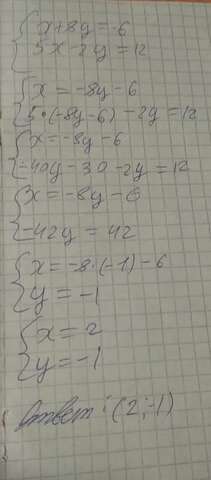 {x+8y=-6
{5x-2y=12
{x=-8y-6
{5·(-8y-6)-2y=12
{x=-8y-6
{-40y-30-2y=12
{x=-8y-6
{-42y=42
{x=-8·(-1)-6
{y=-1
{x=2
{y=-1
Ответ: (2;-1)